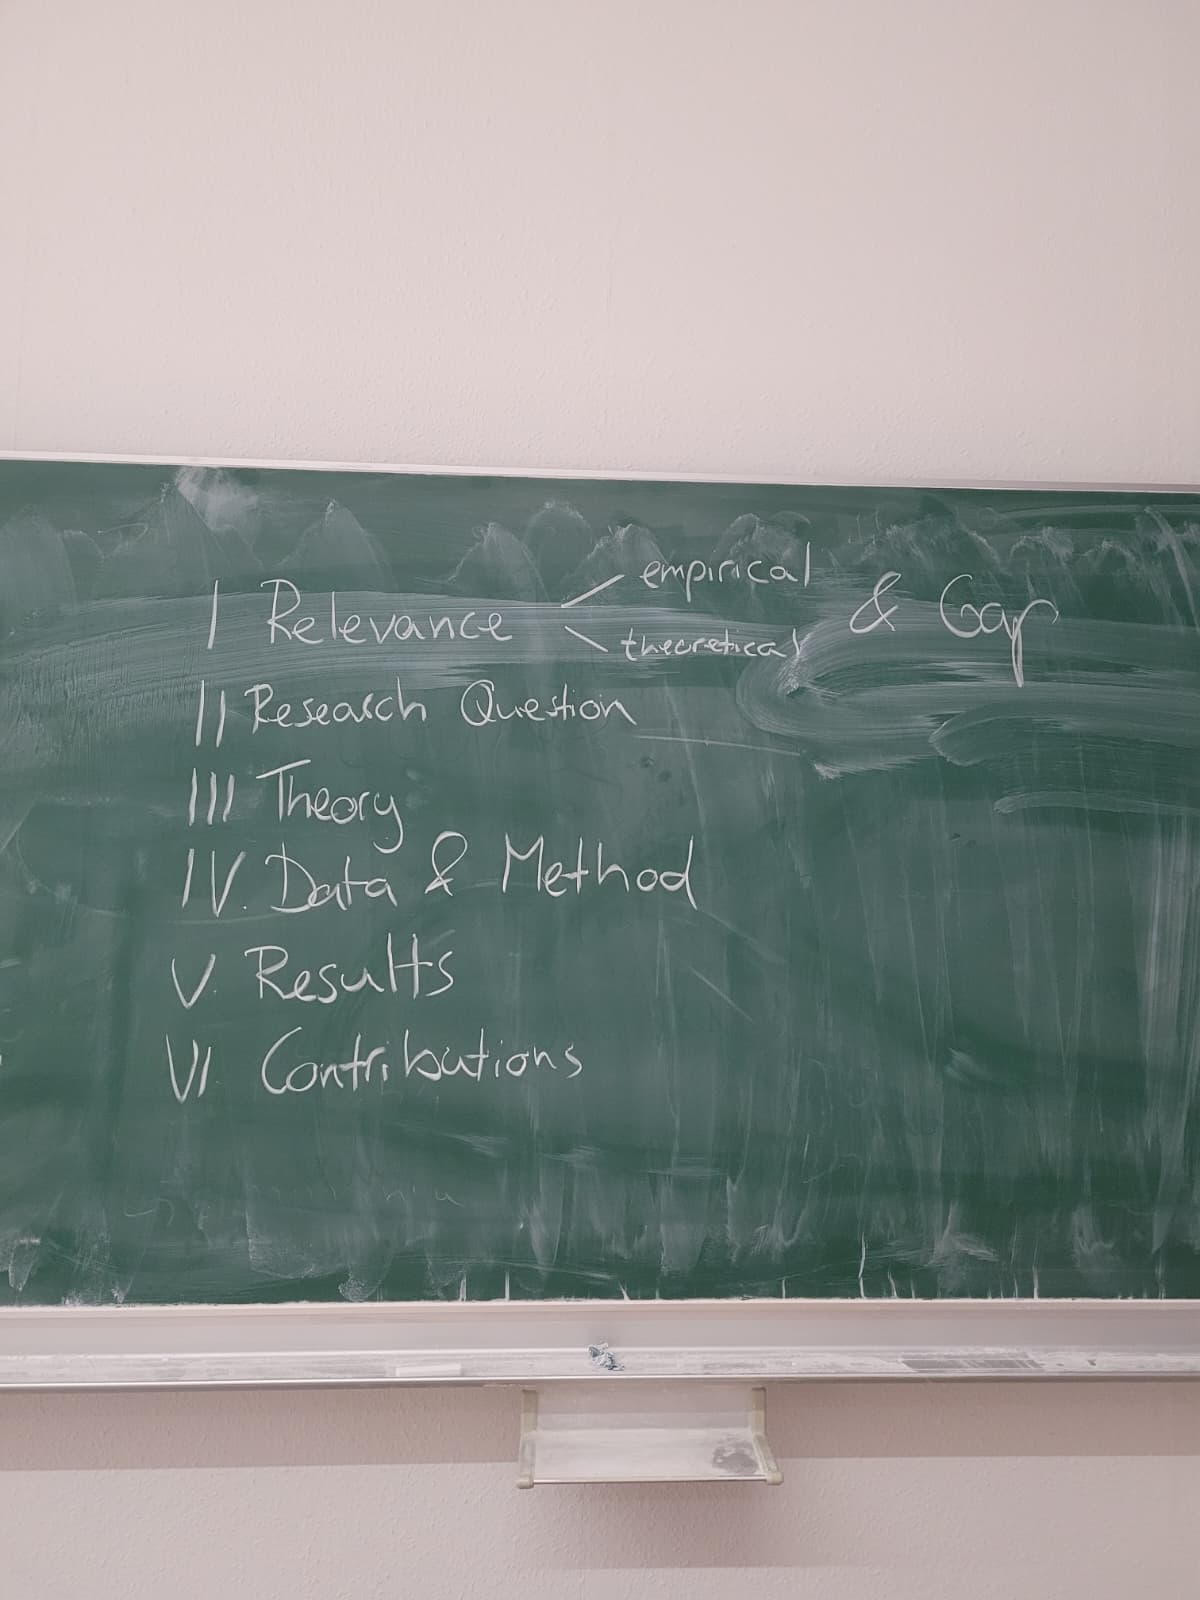 I Relevance empirical & Gap
theoretical
II Research Question
III Theory
IV. Data & Method
V. Results
VI Contributions